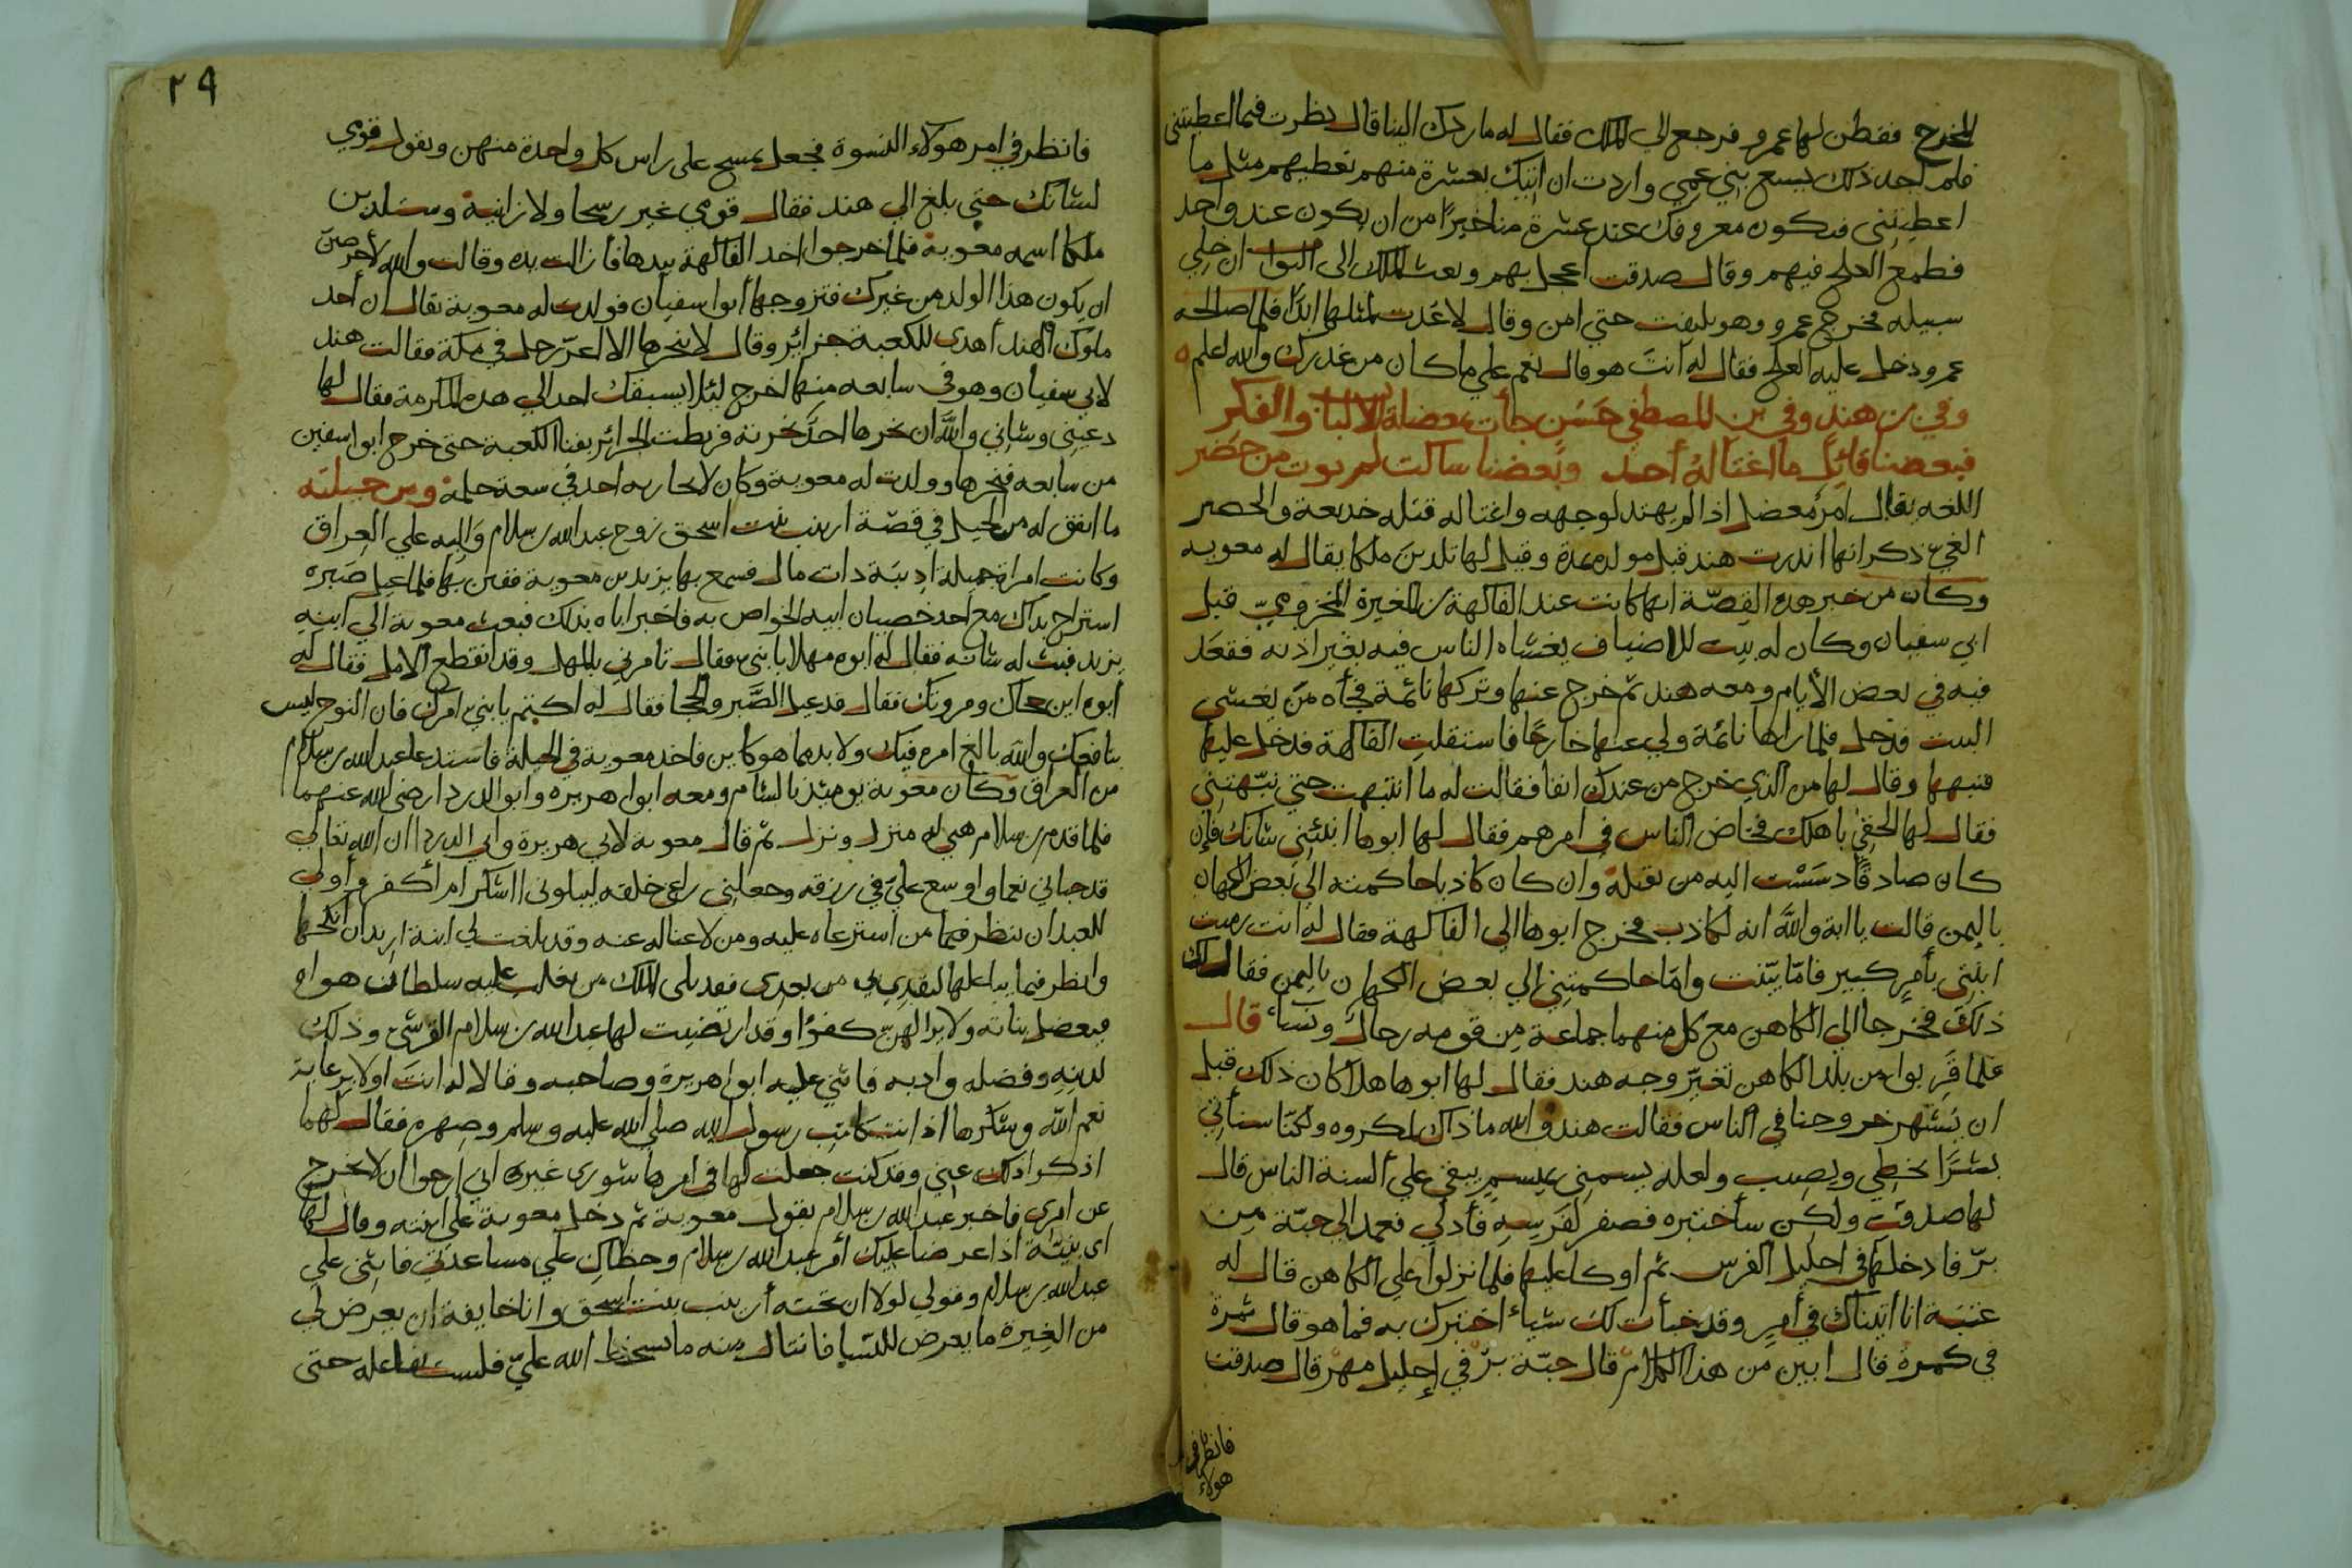 المخرج ففطن لها عمرو فرجع الي الملك فقال له ما ردك الينا قال نظرت فيما اعطيتني
فلم اجد ذلك يسع بني عمي واردت ان اتيك بعشرة منهم تعطيهم مثل ما
اعطيتني فيكون معروفك عند عشرة منا خيرًا من ان يكون عند واحد
فطمع العلج فيهم وقال صدقت اعجل بهم وبعث الملك الى البواب ان خلي
سبيله فخرج عمرو وهو يلتفت حتي امن وقال لا عُدت لمثلها ابدًا فلما صالحه
عمرو دخل عليه العلج فقال له انت هو قال نعم علي ما كان من غدرك والله اعلم
وفي بن هند وفي بن المصطفي حَسَن جأت بمعضلة الالباب والفكر
فبعضنا قائل ما اغتاله أحد وبعضنا ساكت لم يوت من حصَر
اللغه يقال امرٌ معضل اذا لم يهتد لوجهه واغتاله قتله خديعة والحصر
العيّ ذكر انها انذرت هند قبل مولده بمدة وقيل لها تلدين ملكا يقال له معويه
وكان من خبر هذه القصّة انها كانت عند الفاكهة بن المغيرة المخزوميّ قبل
ابي سفيان وكان له بيت للاضياف يغشاه الناس فيه بغير اذنه فقعَد
فيه في بعض الأيام ومعه هند ثم خرج عنها وتركها نائمة فجأه من يغشى
البيت فدخل فلما راها نائمة ولي عنها خارجًا فاستقلت الفاكهة فدخل عليها
فنبهها وقال لها من الذي خرج من عندك انفا فقالت له ما انتبهت حتي نبّهتني
فقال لها الحقي باهلك فخاض الناس في امرهم فقال لها ابوها انبئني شانك فإن
كان صادقًا دسَسْت اليه من يقتله وان كان كاذبا حاكمته الي بعض الكهان
باليمن قالت يا ابة والله انه لكاذب فخرج ابوها الي الفاكهة فقال له انت رميت
ابنتي بأمرٍ كبير فامّا بيّنت وامّا حاكمتني إلي بعض الكهان باليمن فقال لك
ذلك فخرجا الي الكاهن مع كل منهما جماعة مِن قومه رجال ونساء قال
فلما قَربوا من بلد الكاهن تغيّر وجه هند فقال لها ابوها هلا كان ذلك قبل
ان يشتهر خروجنا في الناس فقالت هند والله ما ذاك لمكروه ولكنّا سناتي
بشرًا يخطي ويصيب ولعله يسمني بميسم يبقي علي ألسنة الناس قال
لها صدقت ولكن سأختبره فصفر لفَرسِه فأدلي فعمد الي حبّة مِن
برّ فادخلها في احليل الفرس ثم اوكا عليها فلما نزلوا علي الكاهن قال له
عتبَة انا اتيناك في أمرٍ وقد خبأت لك شياء اختبرك به فما هو قال ثمرة
في كمرة قال ابين من هذا المرام قال حبّة برّ في إحليل مهر قال صدقت
فانظر في
هولاء
٢٩
فانظر في امر هولاء النسوة فجعل يمسح على راس كل واحدة منهن ويقول قومي
لشانك حتي بلغ الي هند فقال قومي غير رسحا ولا زانية وستلدين
ملكا اسمه معوية فلما خرجوا اخذ الفاكهة بيدها فازالت يده وقالت والله لأحرصن
ان يكون هذا الولد من غيرك فتزوجها أبو سفيان فولدت له معوية يقال ان أحد
ملوك الهند أهدى للكعبة جزائر وقال لا ينحرها الا اعز رجل في مكة فقالت هند
لابي سفيان وهو في سابعه منها اخرج لئلا يسبقك احد الي هذه المكرمة فقال لها
دعيني وشاني والله ان نحرها احدٌ نحرته فربطت الجزائر بفنا الكعبة حتى خرج ابو سفين
من سابعه فنحرها وولدت له معوية وكان لا يجاريه احد في سعة حلمه ومن حيلته
ما اتفق له من الحيل في قصّة ارينب بنت اسحق زوج عبد الله بن سلام وَاليه علي العراق
وكانت امراة جميلة اديبَة ذات مال فسمع بها يزيد بن معوية ففتن بها فلما عيل صَبره
استراح بذاك مع احد خصيان ابيه الخواص به فاخبر اباه بذلك فبعث معوية الي ابنه
يزيد فبث له شانه فقال له ابوه مهلا يا بني فقال تامرني بالمهل وقد انقطع الامل فقال له
ابوه اين حجاك ومروتك فقال قد عيل الصَّبر والحجا فقال له اكتم يا بني امرك فان البوح ليس
بنافعك والله بالغ امره فيك ولا بد مما هو كاين فاخذ معوية في الحيلة فاستدعا عبد الله بن سلام
من العراق وكان معوية يوميذ بالشام ومعه ابو هريره وابو الدردا رضي الله عنهما
فلما قدم بن سلام هيي له منزل ونزل ثم قال معوية لابي هريرة وابي الدردا ان الله تعالى
قد حباني نعما واوسع عليّ في رزقه وجعلني راعي خلقه ليبلوني ااشكر ام أكفر وأولى
للعبد ان ينظر فيما من استرعاه عليه ومن لا غنا له عنه وقد بلغت لي ابنة اريد ان أنكحها
وانظر فيما يباعلها لتقتدي بي من بعدي فقد يلى الملك من يغلب عليه سلطان هواه
فيعضل بناته ولا يرا لهن كفوًا وقد ارتضيت لها عبد الله بن سلام القرشي وذلك
لدينِه وفضله وادبه فاثني عليه ابو هريرة وصاحبه وقالا له انت اولا برعاية
نعم الله وشكرها اذ انت كاتب رسول الله صلى الله عليه وسلم وصِهره فقال لهما
اذكرا ذلك عني وقد كنت جعلت لها في امرها شورى غير اني ارجوا ان لا تخرج
عن امري فاخبر عبد الله بن سلام بقول معوية ثم دخل معوية على ابنته وقال لها
اي بنيّة اذا عرضا عليك أمر عبد الله بن سلام وحظاك علي مساعدتي فاثني علي
عبد الله بن سلام وقولي لولا ان تحته أرينب بنت اسحق وانا خايفة ان يعرض لي
من الغيرة ما يعرض للنسا فانتال منه ما يسخط الله عليّ فلست بفاعله حتى